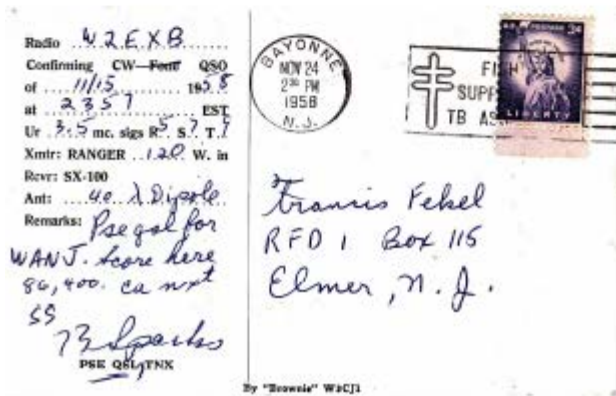 Radio W2EXB
Confirming CW-Fone QSO
of 11/15 1958
at 2357 EST
Ur 3.5 mc. sigs R5 S.7 T.9
Xmtr: RANGER 120 W. in
Rcvr: SX-100
Ant: 40 λ Dipole
Remarks: Pse qsl for
WANJ. Score here
86,400. ca nxt
SS
73 Sparks
PSE QSL TNX
BAYONNE
NOV 24
2 30 PM
1958
N.J.
FIGH
SUPP
TB AS
U.S. POSTAGE 3¢
LIBERTY
Francis Fekel
RFD 1 Box 115
Elmer, N.J.
By "Brownie" W3CJI